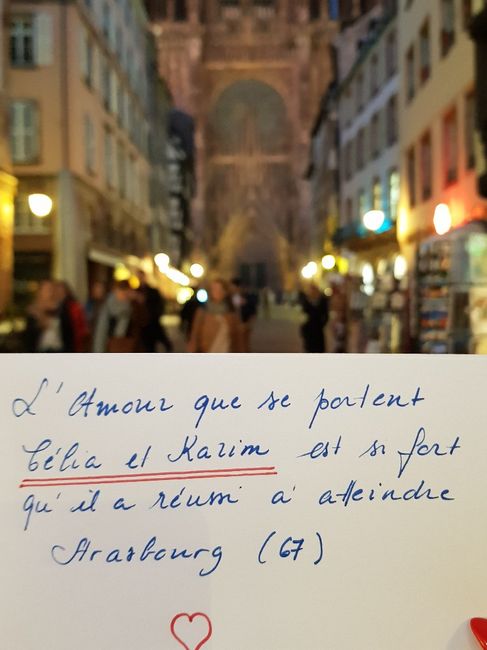 L'Amour que se portent
Célia et Karim est si fort
qu'il a réussi à atteindre
Strasbourg (67)